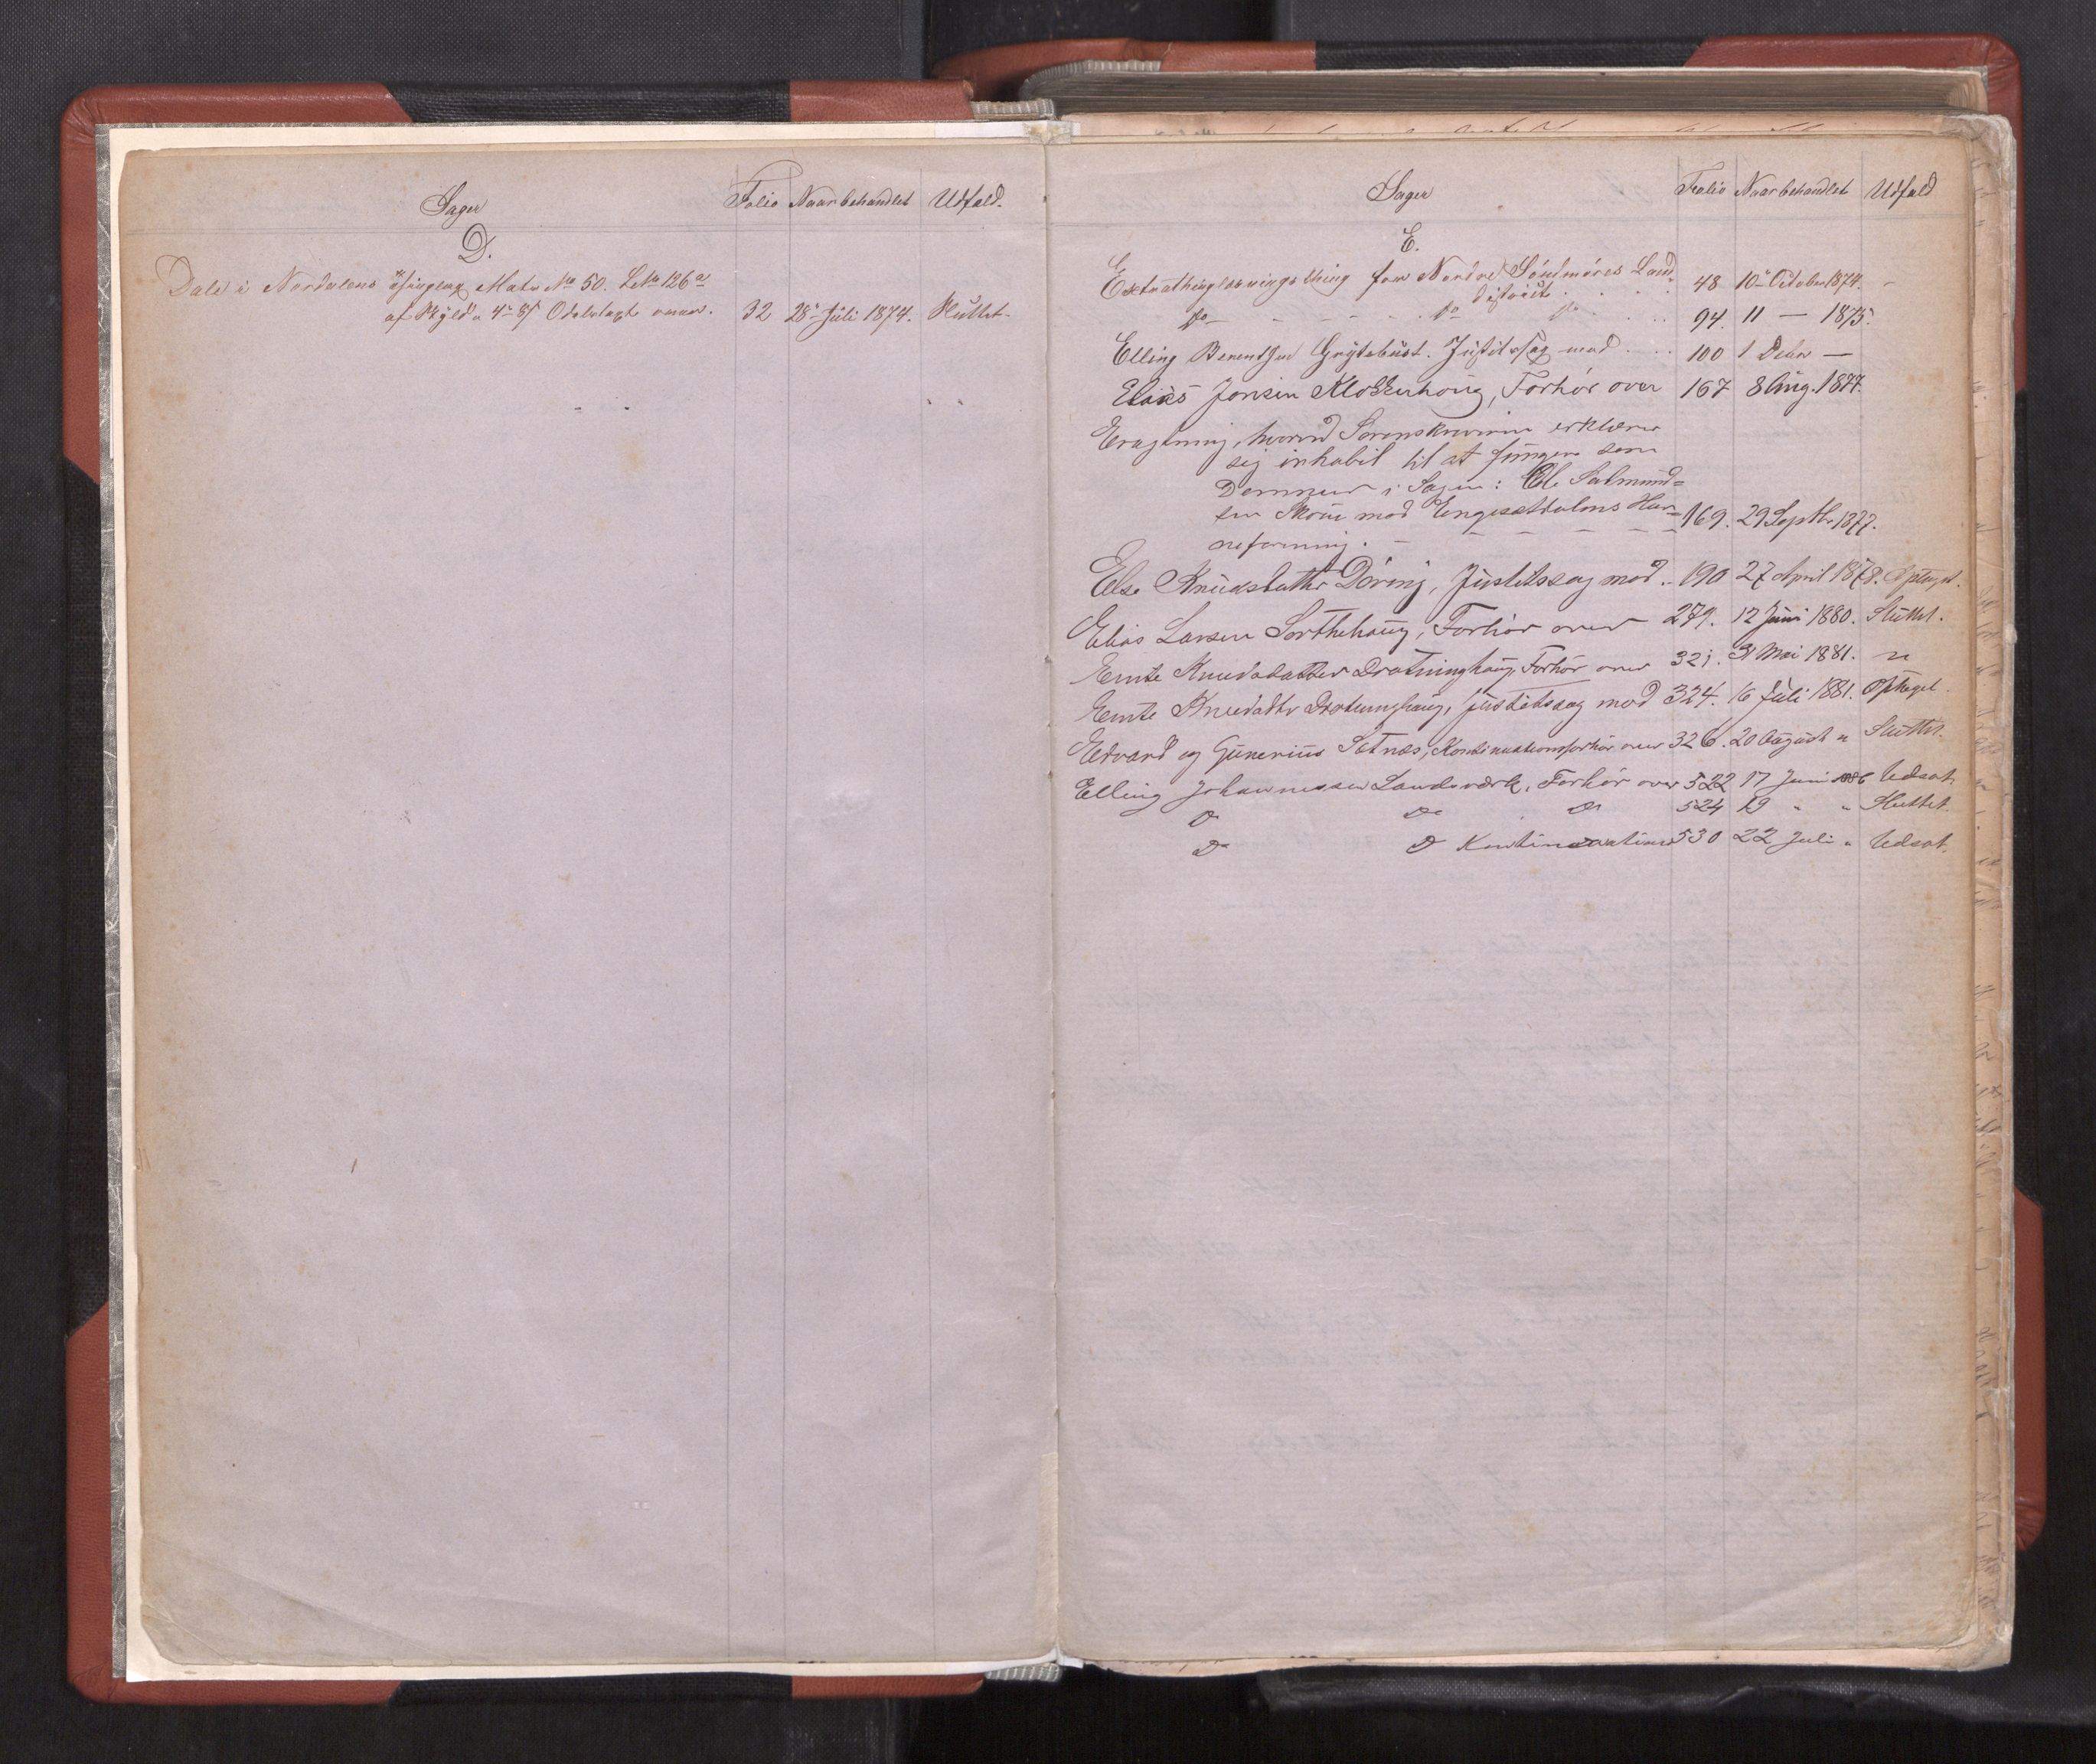 Sager Folio Naar behandlet Udfald.
D.
Dale i Nordalens Thinglag Matr No 50. LNo 126a
af Skyld " 4- 8/ Odelstagt over. 32 28- Juli 1874. Sluttet.
Sager Folio Naar behandlet Udfald
E.
Extrathinglæsningsthing for Nordre Söndmöres Land-
distrikt . . . . 48 10- October 1874. -
Do - - - - - - Do Do . . . . 94. 11 — 1875.
Elling Berentsen Grytebust. Justitssag mod . . . 100 1 Decbr —
Elias Jonsen Klokkerhoug, Forhör over 167 8 Aug. 1877.
Eragtning, hvorved Sorenskriveren erklærer
sig inhabil til at fungere som
Dommer i Sagen: Ole Salmund=
sen Skoue mod Engesætdalens Har=
169. 29 Septbr 1877.
neforening. - - - - - -
Else Knudsdatter Döving, Justitssag mod .. 190 27 April 1878. Optaget.
Elias Larsen Sorthehaug, Forhör over 279. 12 Juni 1880. Sluttet.
Ernte Knudsdatter Dratninghaug, Forhör over 321. 31 Mai 1881. "
Ernte Knudsdtr Drotninghaug, Justitssag mod 324. 16 Juli 1881. Optaget.
Edvard og Gunerius Sætnæs, Kontinuationsforhör over 326. 20 August " Sluttet.
Elling Johannessen Landsværk, Forhör over 522 17 Juni 1886 Udsat.
Do Do Do 524 19 " " Sluttet.
Do Do Kontinuations 530 22 Juli " Udsat.